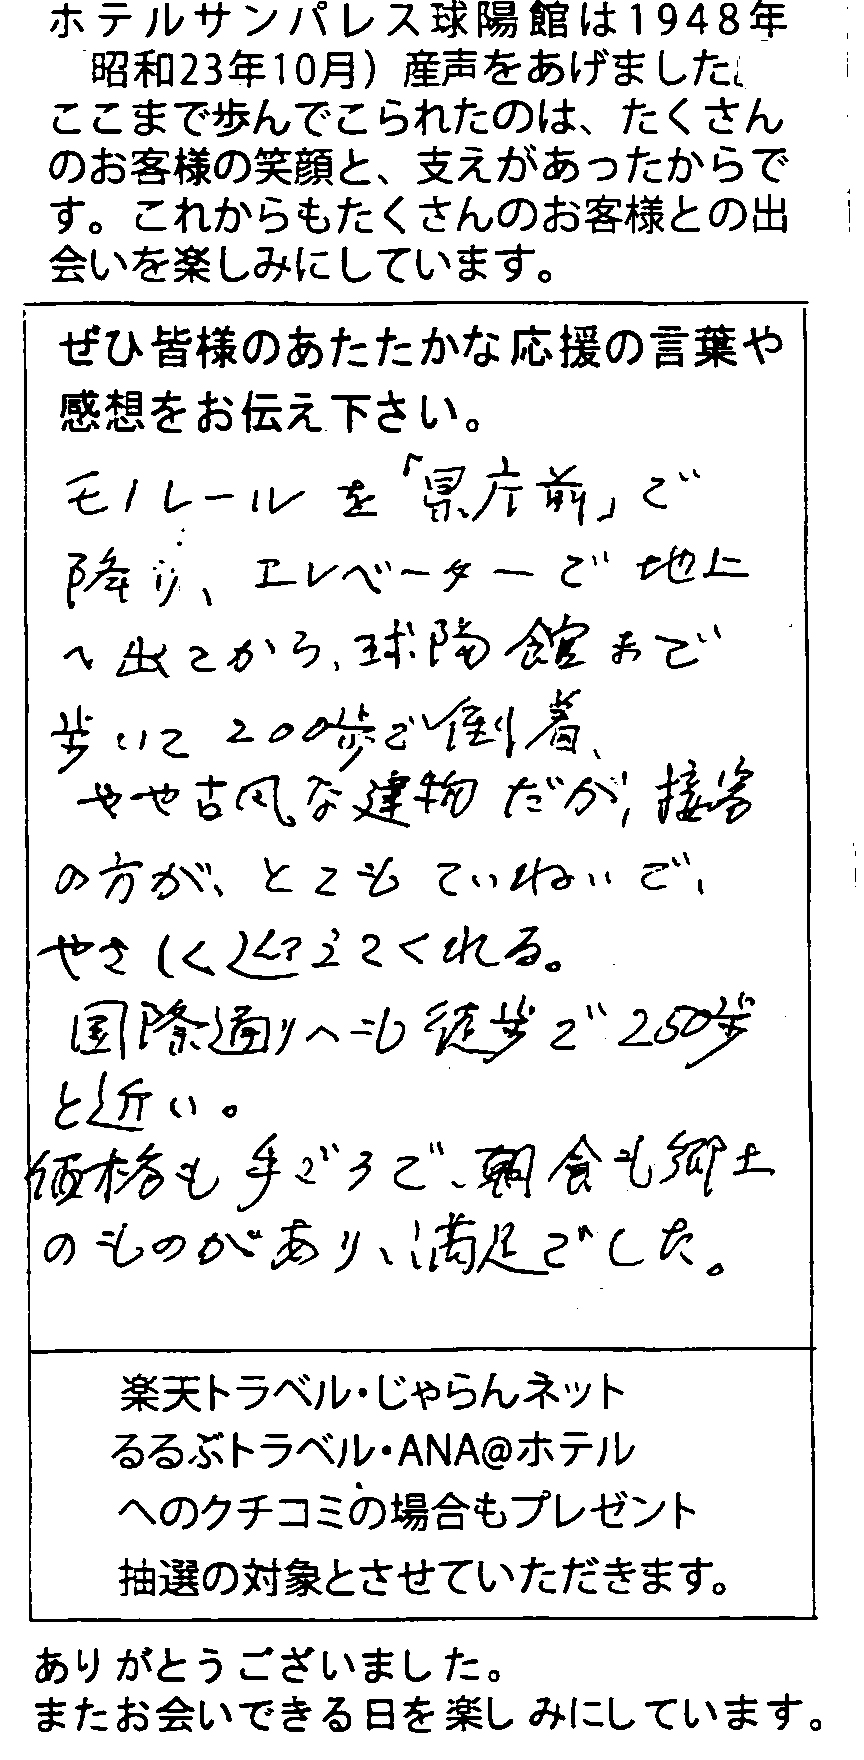 ホテルサンパレス球陽館は1948年
昭和23年10月）産声をあげました。
ここまで歩んでこられたのは、たくさん
のお客様の笑顔と、支えがあったからで
す。これからもたくさんのお客様との出
会いを楽しみにしています。
ぜひ皆様のあたたかな応援の言葉や
感想をお伝え下さい。
モノレールを「県庁前」で
降り、エレベーターで地上
へ出てから、球陽館まで
歩いて200歩で到着、
やや古風な建物だが、接客
の方が、とてもていねいで、
やさしく迎えてくれる。
国際通りへも徒歩で250歩
と近い。
価格も手ごろで、朝食も郷土
のものがあり、満足でした。
楽天トラベル・じゃらんネット
るるぶトラベル・ANA@ホテル
へのクチコミの場合もプレゼント
抽選の対象とさせていただきます。
ありがとうございました。
またお会いできる日を楽しみにしています。